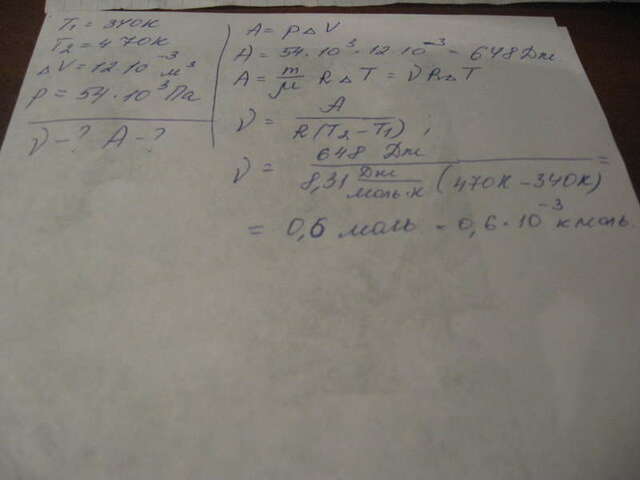 T₁ = 340К
T₂ = 470К
ΔV = 12·10⁻³ м³
P = 54·10³ Па
ν - ? A - ?
A = pΔV
A = 54·10³·12·10⁻³ = 648 Дж
A = m/μ RΔT = νRΔT
ν = A / R(T₂ - T₁) ;
ν = 648 Дж / 8,31 Дж/моль·К (470К - 340К) =
= 0,6 моль = 0,6·10⁻³ кмоль.